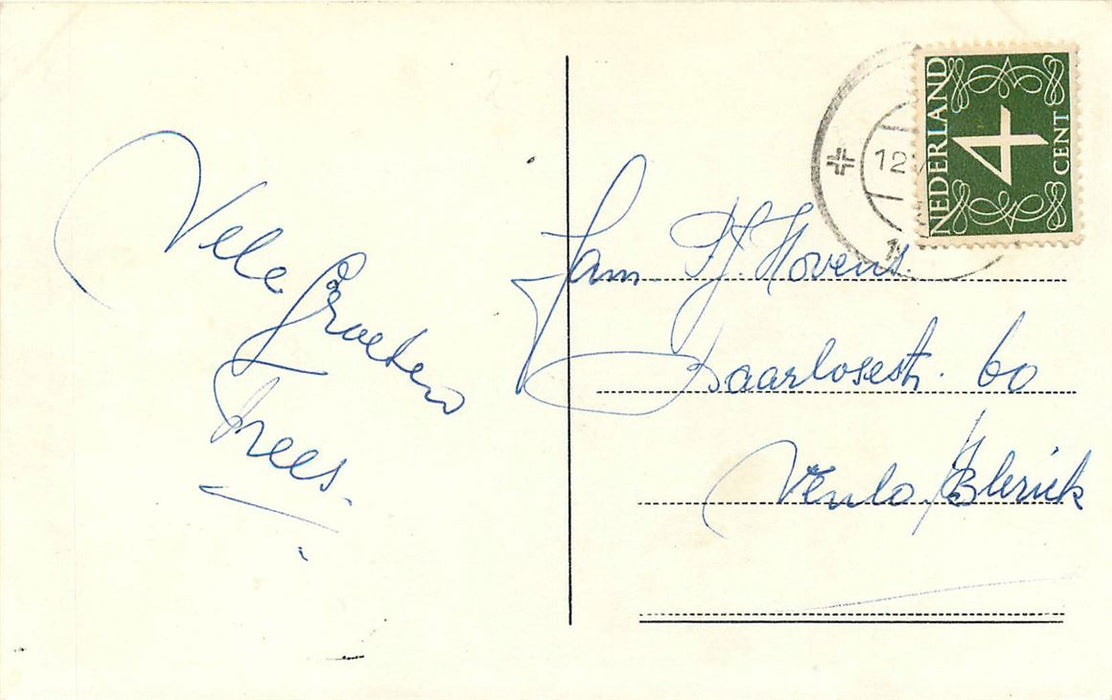 Vele
Groeten
Trees.
Fam. P.J. Hovens.
Baarlosestr. 60
Venlo/Blerick
NEDERLAND
4
CENT
12